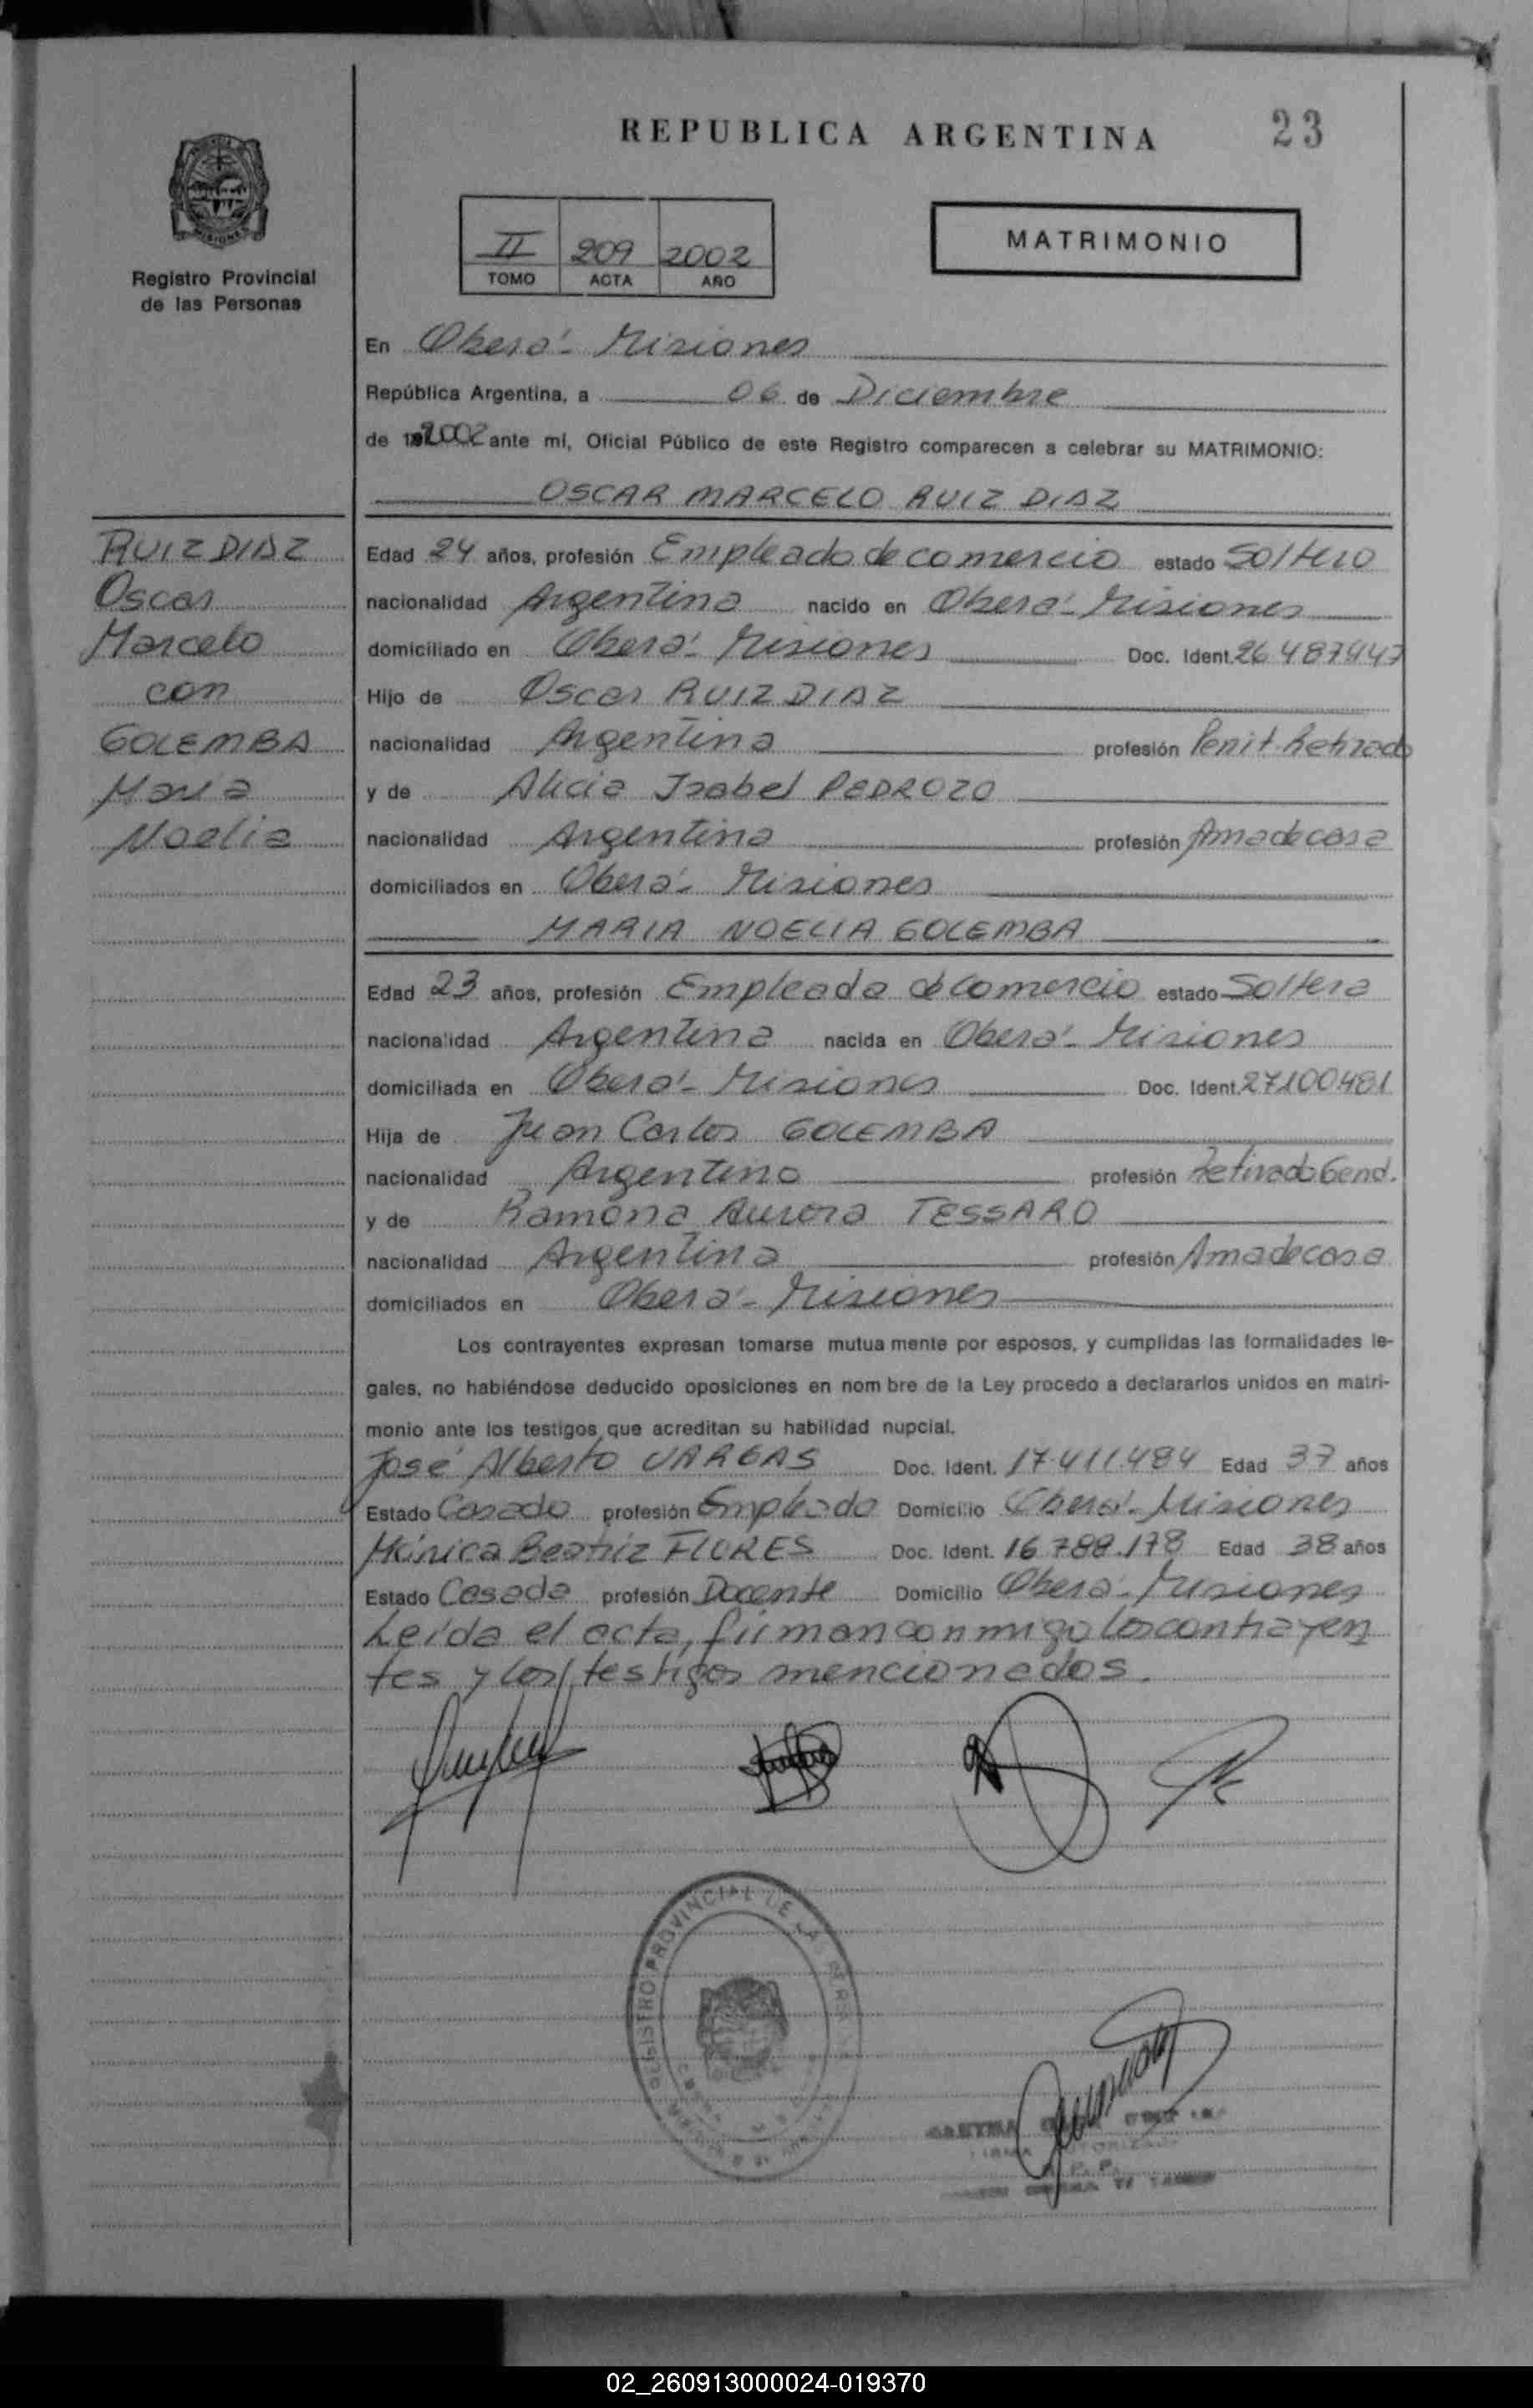 REPUBLICA ARGENTINA
23
Registro Provincial
de las Personas
II 209 2002
TOMO ACTA AÑO
MATRIMONIO
En Oberá - Misiones
República Argentina, a 06 de Diciembre
de 2002 ante mí, Oficial Público de este Registro comparecen a celebrar su MATRIMONIO:
OSCAR MARCELO RUIZ DIAZ
RUIZ DIAZ
Oscar
Marcelo
con
GOLEMBA
Maria
Noelia
Edad 24 años, profesión Empleado de comercio estado Soltero
nacionalidad Argentina nacido en Oberá - Misiones
domiciliado en Oberá - Misiones Doc. Ident. 26.487447
Hijo de Oscar RUIZ DIAZ
nacionalidad Argentina profesión Penit. Retirado
y de Alicia Isabel PEDROZO
nacionalidad Argentina profesión Ama de casa
domiciliados en Oberá - Misiones
MARIA NOELIA GOLEMBA
Edad 23 años, profesión Empleada de comercio estado Soltera
nacionalidad Argentina nacida en Oberá - Misiones
domiciliada en Oberá - Misiones Doc. Ident. 27100481
Hija de Juan Carlos GOLEMBA
nacionalidad Argentino profesión Retirado Gend.
y de Ramona Aurora TESSARO
nacionalidad Argentina profesión Ama de casa
domiciliados en Oberá - Misiones
Los contrayentes expresan tomarse mutua mente por esposos, y cumplidas las formalidades le-
gales, no habiéndose deducido oposiciones en nom bre de la Ley procedo a declararlos unidos en matri-
monio ante los testigos que acreditan su habilidad nupcial.
José Alberto VARGAS Doc. Ident. 17.411.484 Edad 37 años
Estado Casado profesión Empleado Domicilio Oberá - Misiones
Mónica Beatriz FLORES Doc. Ident. 16.788.178 Edad 38 años
Estado Casada profesión Docente Domicilio Oberá - Misiones
Leída el acta, firman conmigo los contrayen
tes y los testigos mencionados.
REGISTRO PROVINCIAL DE LAS PERSONAS
02_260913000024-019370